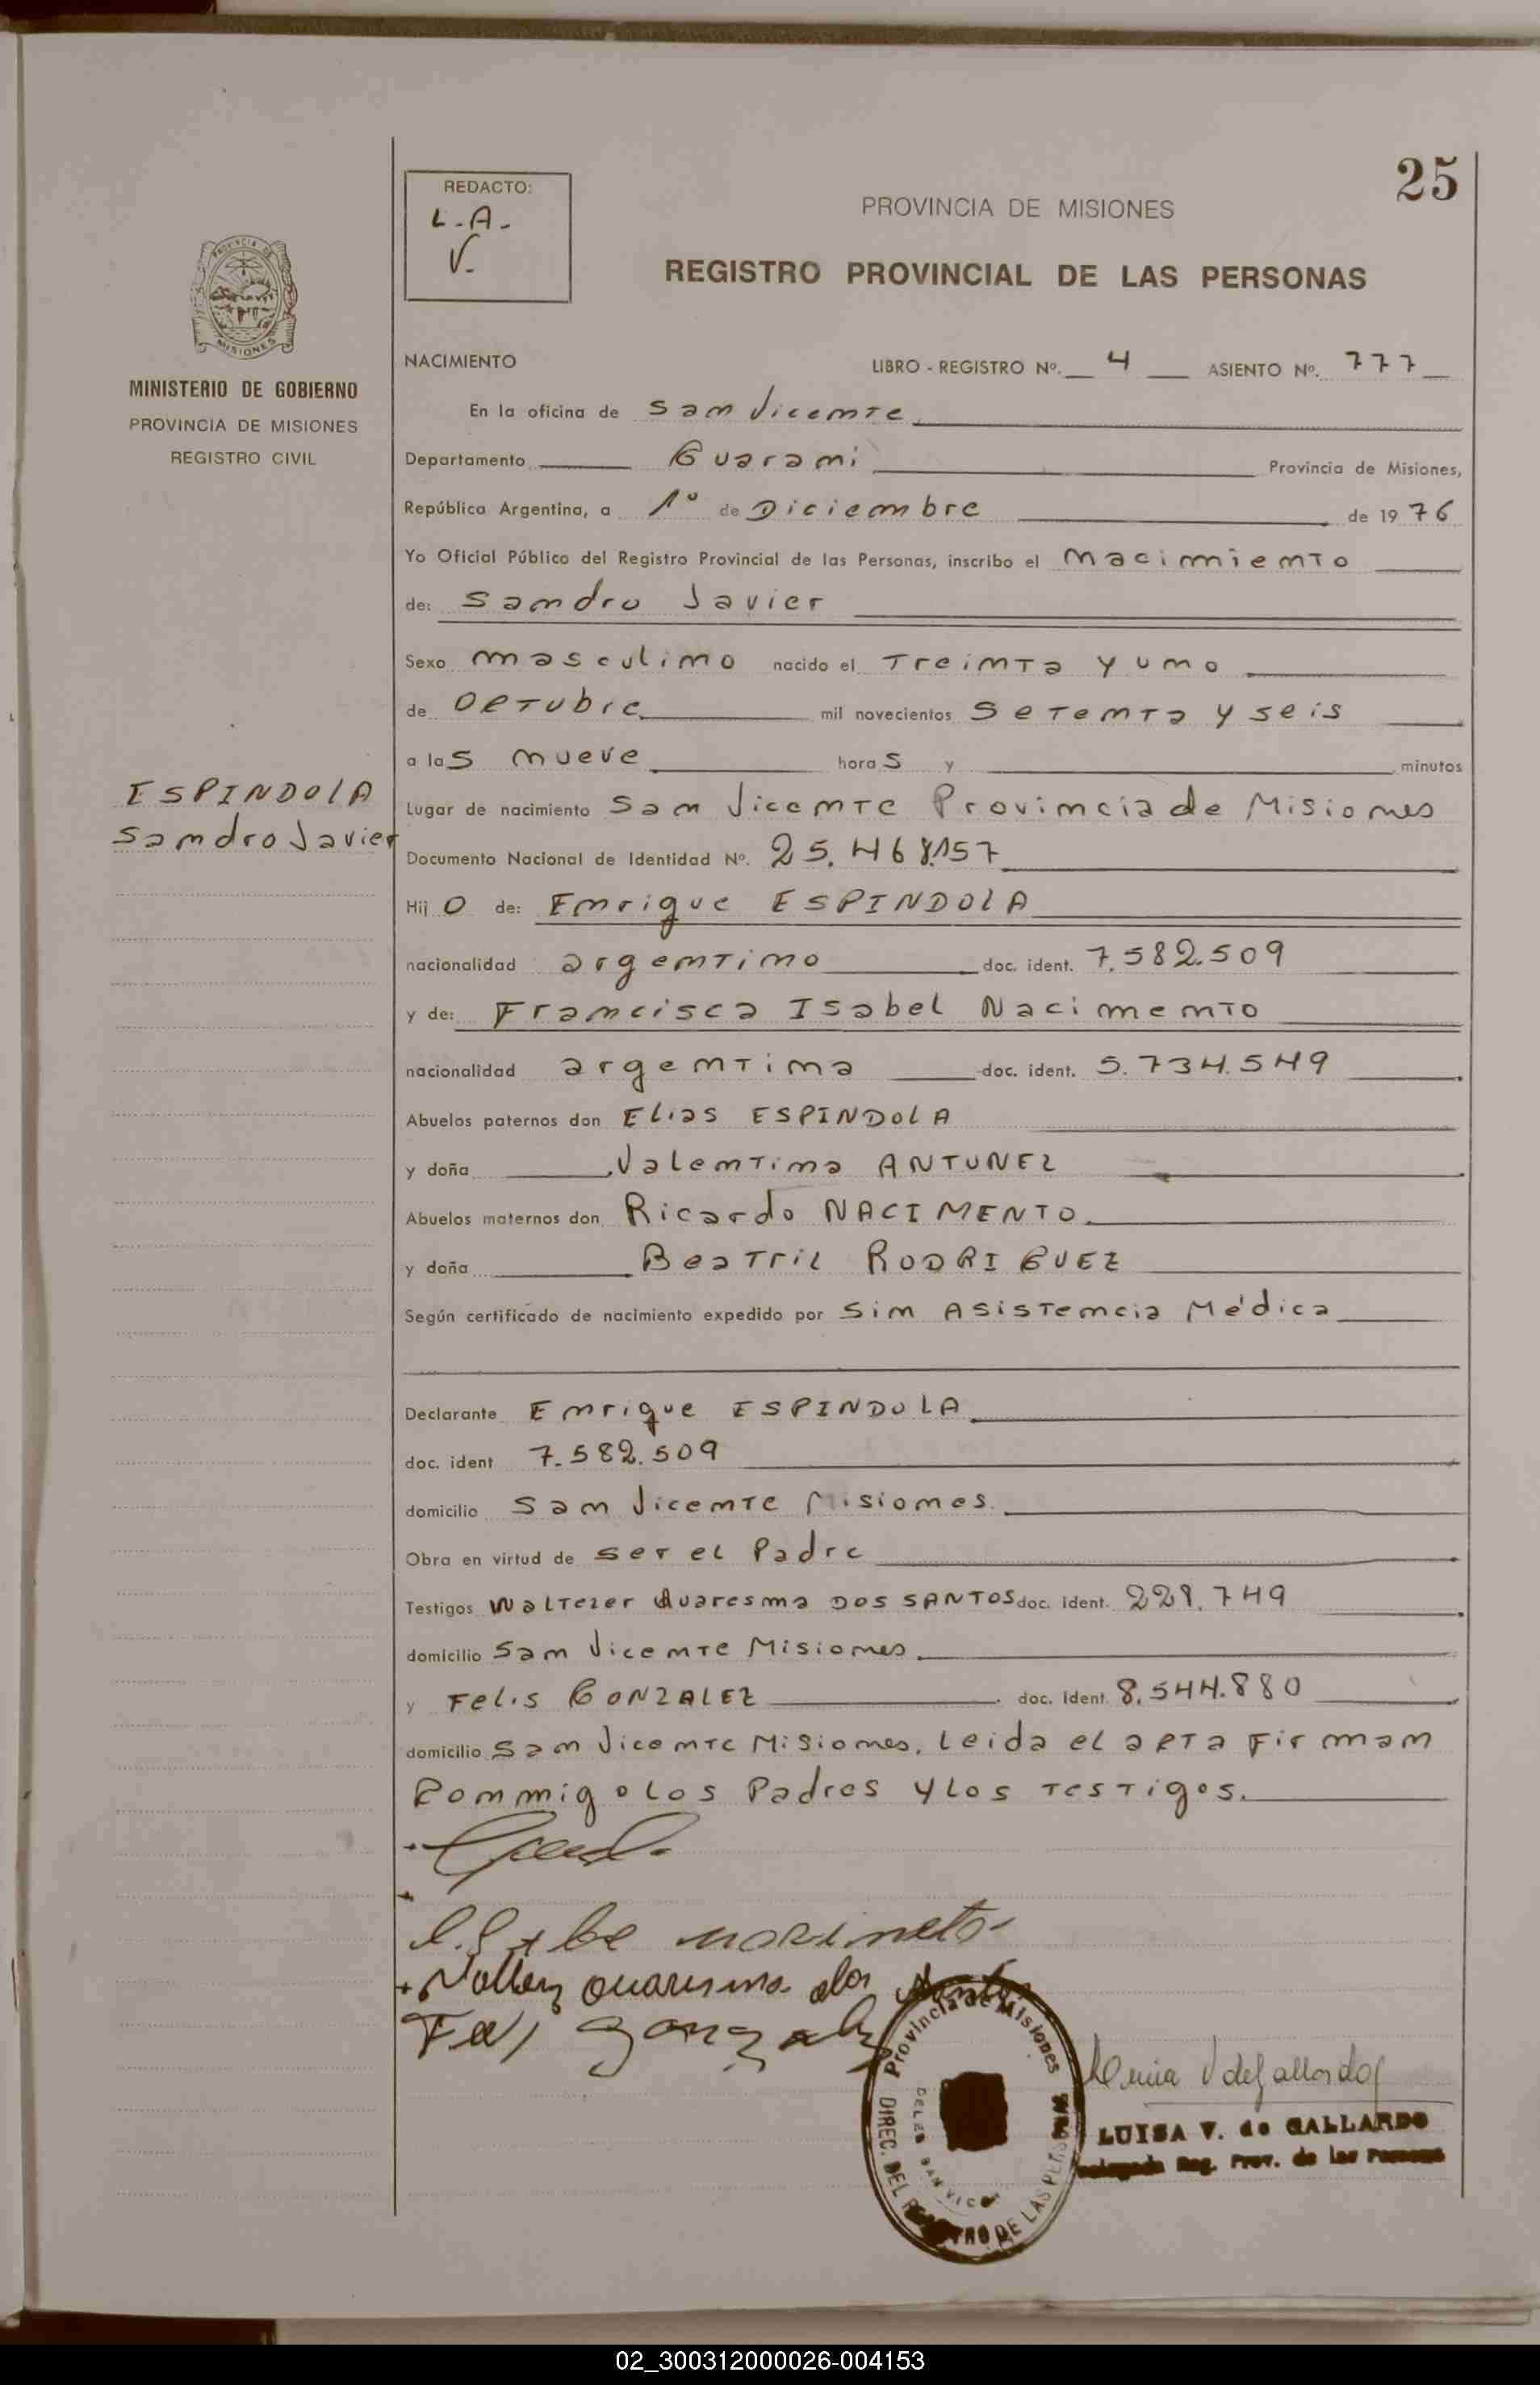 25
REDACTO:
L.A.
V.
PROVINCIA DE MISIONES
REGISTRO PROVINCIAL DE LAS PERSONAS
PROVINCIA DE
MISIONES
MINISTERIO DE GOBIERNO
PROVINCIA DE MISIONES
REGISTRO CIVIL
NACIMIENTO LIBRO - REGISTRO Nº. 4 ASIENTO Nº. 777
En la oficina de San Vicente
Departamento Guarani Provincia de Misiones,
República Argentina, a 1º de Diciembre de 1976
Yo Oficial Público del Registro Provincial de las Personas, inscribo el Nacimiento
de: Sandro Javier
Sexo masculino nacido el Treinta y uno
de Octubre mil novecientos Setenta y seis
a las nueve horas y minutos
ESPINDOLA
Sandro Javier
Lugar de nacimiento San Vicente Provincia de Misiones
Documento Nacional de Identidad Nº. 25.468.157
Hijo de: Enrique ESPINDOLA
nacionalidad argentino doc. ident. 7.582.509
y de: Francisca Isabel Nacimento
nacionalidad argentina doc. ident. 5.734.549
Abuelos paternos don Elias ESPINDOLA
y doña Valentina ANTUNEZ
Abuelos maternos don Ricardo NACIMENTO
y doña Beatriz RODRIGUEZ
Según certificado de nacimiento expedido por Sin Asistencia Médica
Declarante Enrique ESPINDOLA
doc. ident 7.582.509
domicilio San Vicente Misiones.
Obra en virtud de ser el Padre
Testigos Waltezer Quaresma DOS SANTOS doc. ident. 228.749
domicilio San Vicente Misiones
y Felis GONZALEZ doc. ident. 8.544.880
domicilio San Vicente Misiones. Leida el acta Firman
Conmigo los Padres y los Testigos.
Provincia de Misiones
DIREC. DEL REGISTRO DE LAS PERSONAS
LUISA V. de GALLARDO
Reg. Prov. de las Personas
02_300312000026-004153